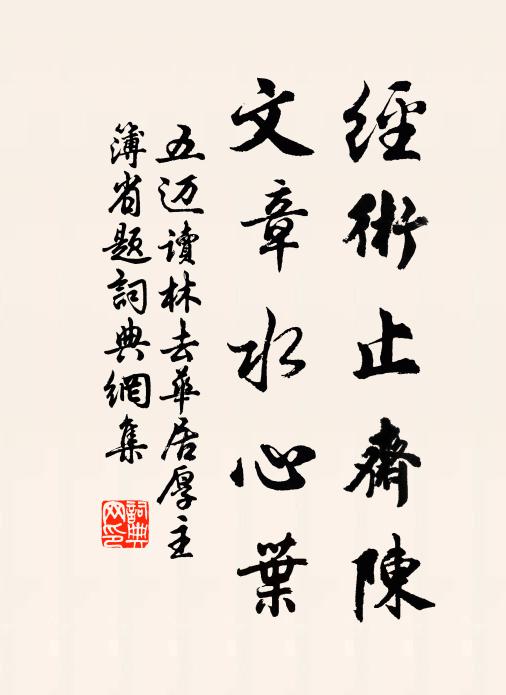 經術止齋陳
文章水心葉
五迈讀林去華居厚主
簿省題詞典網集
詞典
网印